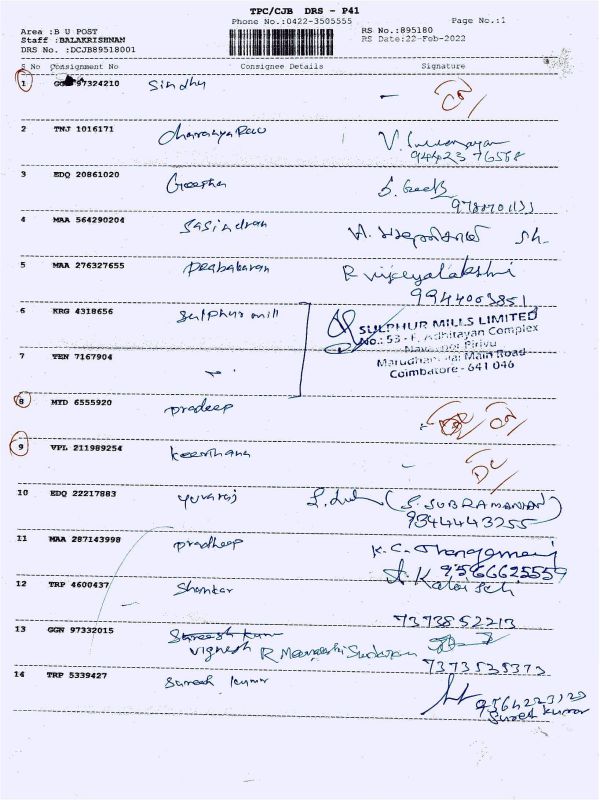 TPC/CJB DRS - P41
Phone No.:0422-3505555 Page No.:1
Area :B U POST RS No.:895180
Staff :BALAKRISHNAN RS Date:22-Feb-2022
DRS No. :DCJB89518001
S No Consignment No Consignee Details Signature
1 97324210 Sindhu
2 TNJ 1016171
94423 76588
3 EDQ 20861020 Geetha S. Geetha
4 MAA 564290204 Sasindran
5 MAA 276327655 Prabakaran R vijeyalakshmi
9944003851
6 KRG 4318656 Sulphur mill SULPHUR MILLS LIMITED
No.: 53 - F, Adhitayan Complex
Pirivu
7 TEN 7167904 Main Road
Coimbatore - 641 046
8 MYD 6555920 pradeep
9 VPL 211989254 Keerthana DC
10 EDQ 22217883 yuvaraj (S. SUBRAMANIAN)
9344443255
11 MAA 287143998 pradheep K.C. Thangamani
9566625559
12 TRP 4600437 Shankar
7373852213
13 GGN 97332015 Suresh kumar
Vignesh R Meenakshi Sundaram
7373535373
14 TRP 5339427 Suresh kumar
Suresh kumar